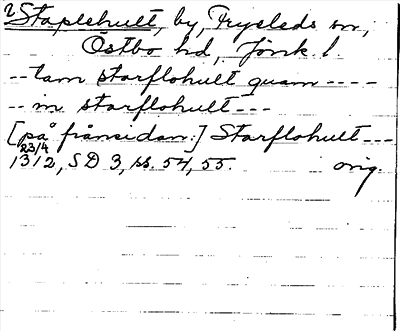 Staplehult, by, Tryeleds sn,
Östbo hd, Jönk. l.
-- tam starflohult quam ----
-- in starflohult ---
[på frånsidan:] Starflohult ---
23/4
1312, SD 3, ss. 54, 55. orig.